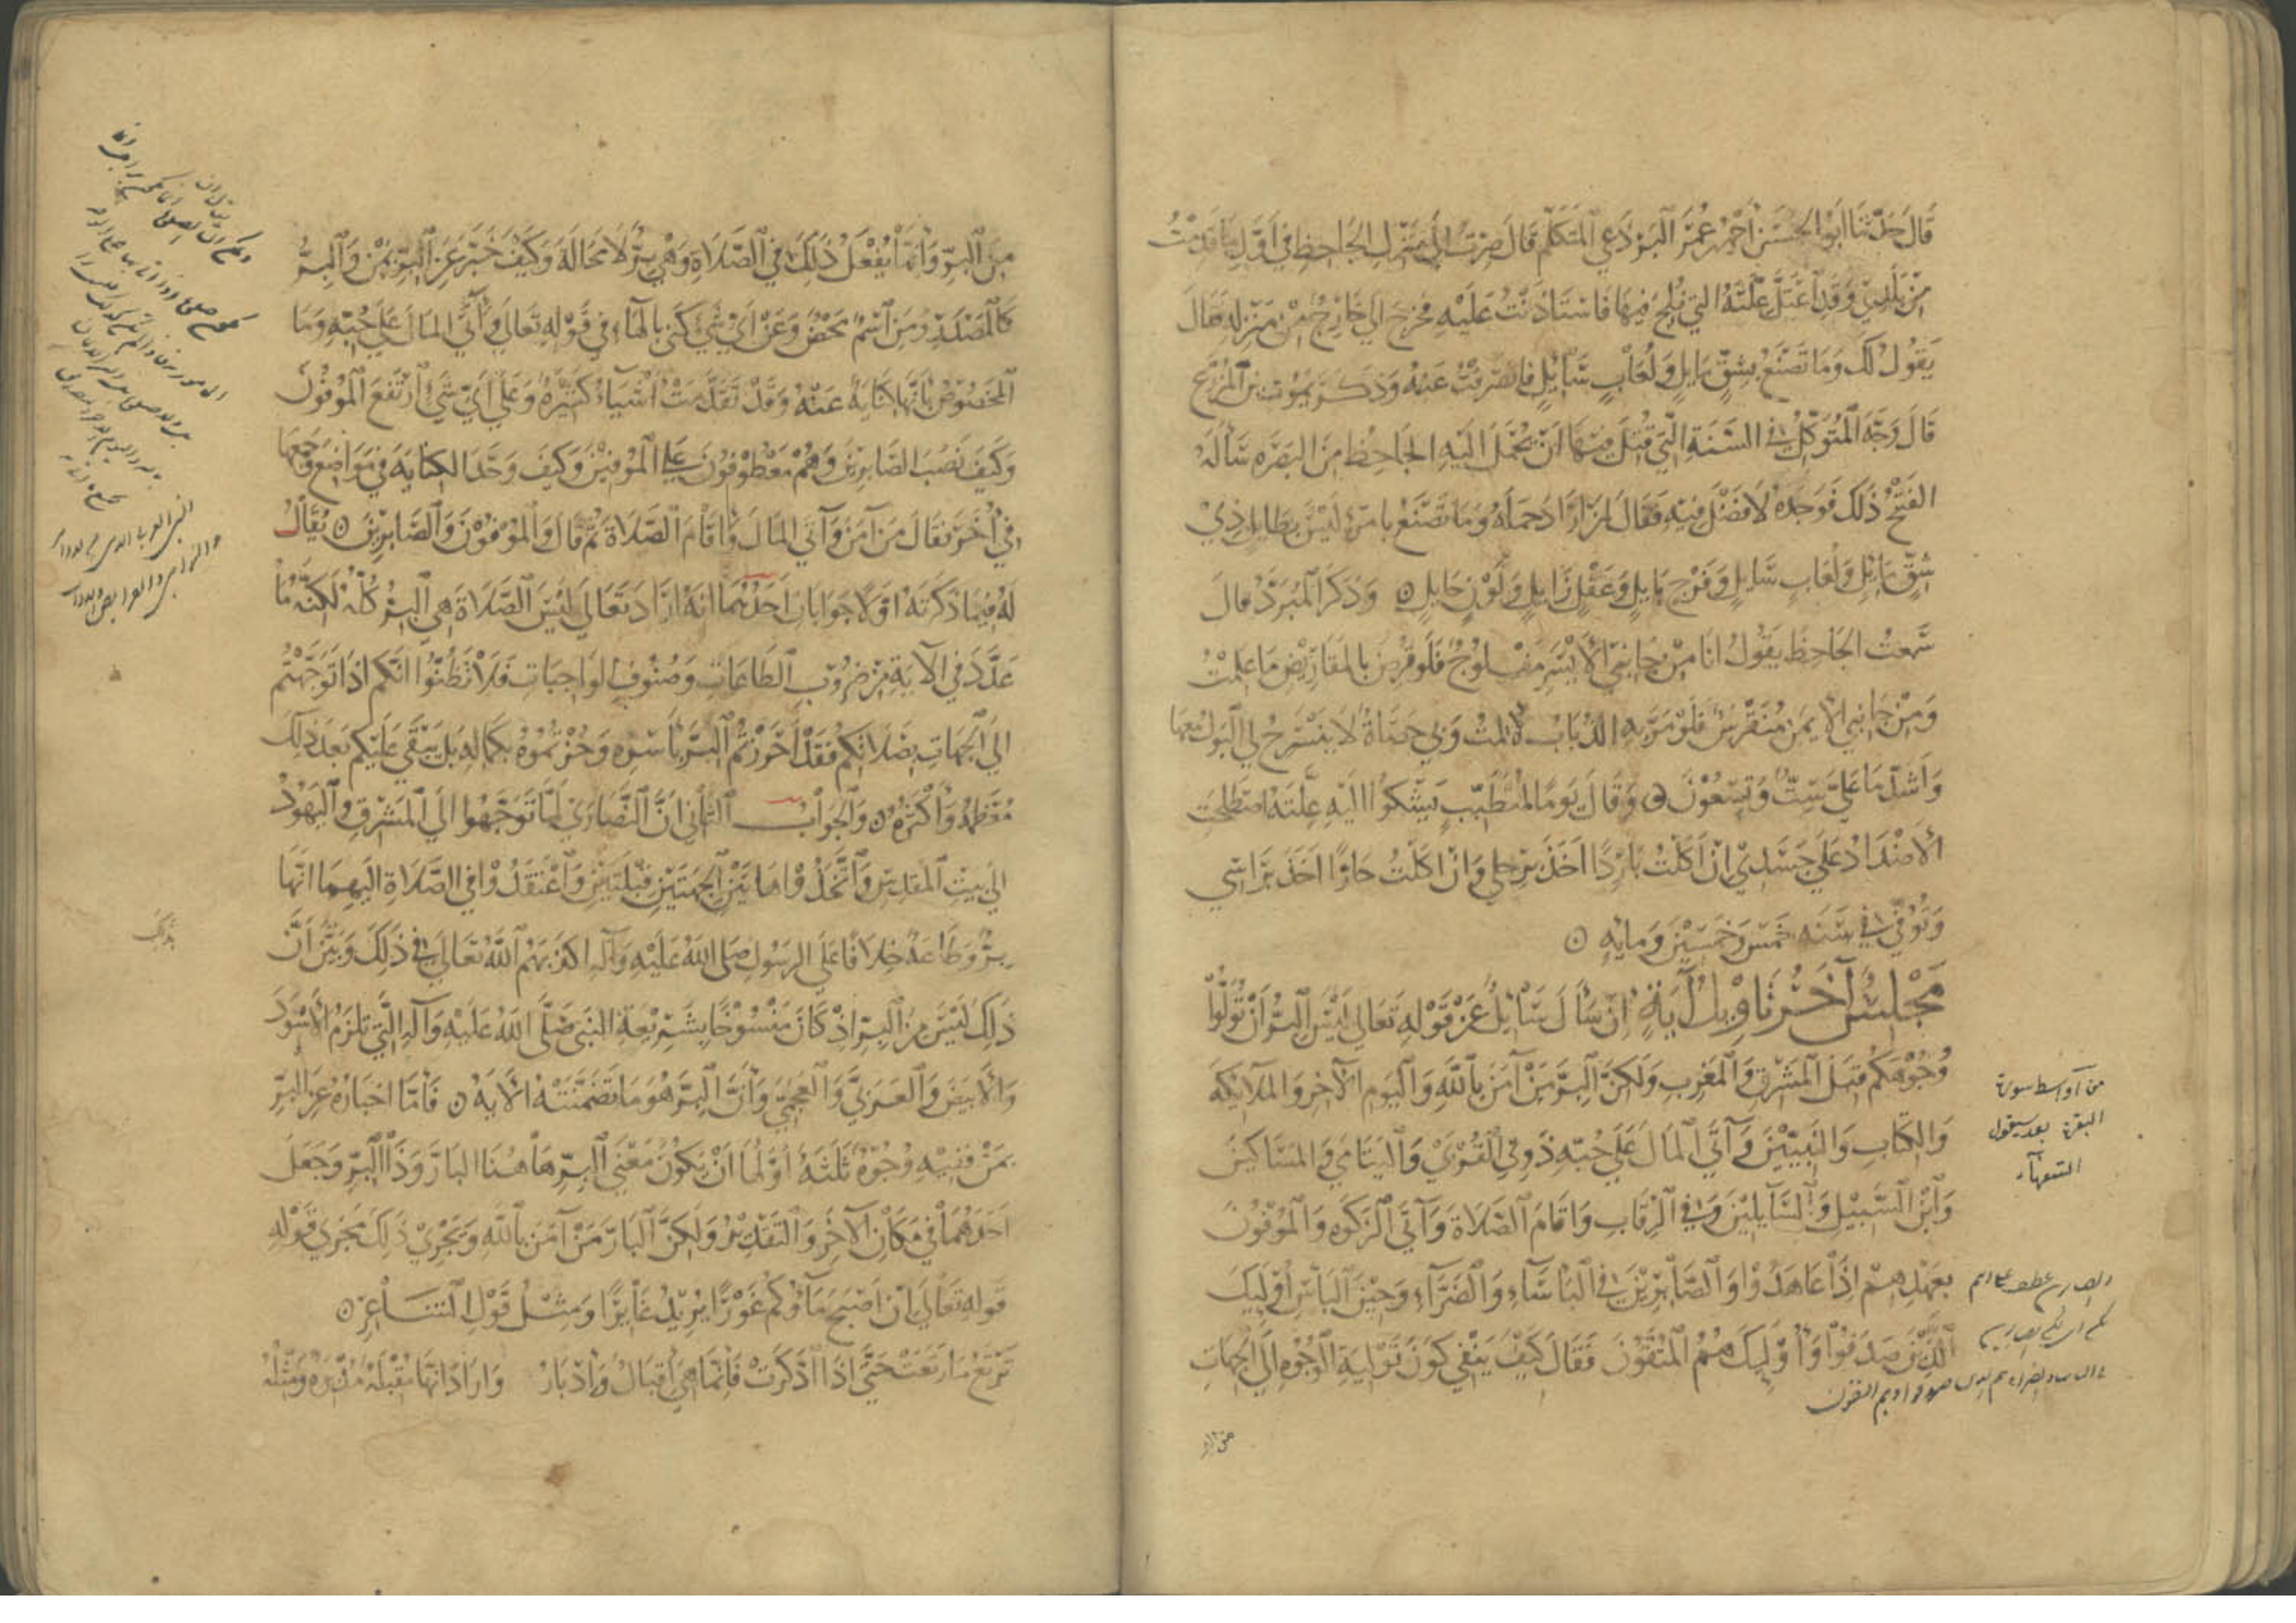 قَالَ حَدَّثَنَا أَبُو الحَسَن أحمد عُمَر البَرْدَعِي المُتَكَلِّم قَالَ صِرْتُ إلى مَنْزِلِ الجَاحِظِ فِي أَوَّلِ مَا قَدِمْتُ
مِنْ بَلَدِي وَقَدِ اعْتَلَّ عِلَّتَهُ التي فُلِجَ فِيهَا فَاسْتَأذَنْتُ عَلَيْهِ فَخَرَجَ الي خَارِجٌ مِنْ مَنْزِلِهِ فقال
يَقُولُ لَكَ وَمَا تَصْنَعُ بِشِقٍّ مَايِلٍ وَلُعَابٍ سَايِلٍ فانصَرَفْتُ عَنْهُ وَذَكَرَ يَمُوت بن المُزَرَّعِ
قَالَ وَجَّهَ المُتَوَكِّلُ في السَّنَةِ الَّتِي قُتِلَ فِيهَا اَنْ يُحْمَلَ اِلَيْهِ الجَاحِظُ مِنَ البَصْرَه سَأَلَهُ
الفَتْحُ ذَلِكَ فَوَجَدَهُ لَا فَضْلَ فِيْهِ فَقَالَ لِمَنْ اَرَادَ حَمْلَهُ وَمَا تَصْنَعُ بامرءٍ لَيْسَ بِطَايِلٍ ذِيْ
شِقٍّ مَائِلٍ وَلُعَابٍ سَايِلٍ وَفَرْجٍ بَايِلٍ وَعَقْلٍ زَايِلٍ وَلَوْنٍ حَايِلٍ ن وَذَكَرَ المُبَرِّدُ قال
سَمِعْتُ الجَاحِظَ يَقُولُ اَنَا مِنْ جَانِبِيَ الأَيْسَرِ مَفْلُوجٌ فَلَو قُرِضَ بالمَقَارِيْضِ مَا عَلِمْتُ
وَمِنْ جَانِبِي الأَيمَنِ مُنَقْرَسٌ فَلَوْ مَرَّ بِهِ الذُّبَابُ لَأَلِمْتُ وَبِي حَصَاةٌ لَا يَنْسَرِحُ لِي البَوْلُ مَعَهَا
وَاَشَدُّ مَا عَلَيَّ سِتٌّ وَتِسْعُوْنَ ن وَقَالَ يَومًا لِمُتَطَبِّبٍ يَشْكُوا اِلَيْهِ عِلَّتَهُ اصْطَلَحَتِ
الأَضْدَادُ عَلَى جَسَدِيْ اِنْ اَكَلْتُ بَارِدًا اَخَذَ بِرِجْلِي وَاِنْ اَكَلْتُ حَارًّا اَخَذَ بِرَاسِي
وَتُوُفِّيَ فِي سَنَه خَمْسٍ وَخَمْسِيْنَ وَمايَه ن
مَجْلِسٌ آخَرُ تَاوِيلُ آيَةٍ اِنْ سَأَلَ سَايِلٌ عَنْ قَوْلِهِ تَعَالى لَيْسَ البِرُّ اَنْ تُوَلُّوْا
وُجُوْهَكُم قِبَلَ المَشْرِقِ وَالمَغْرِبِ وَلَكِنَّ البِرَّ مَنْ آمَنَ بِاللَّهِ وَاليَومِ الآخِرِ وَالمَلَايكَةِ
وَالكِتَابِ وَالنَّبِيِّيْنَ وَآتَى المَالَ عَلَى حُبِّهِ ذَوِي القُرْبَى وَاليَتَامَى وَالمَسَاكِينَ
وَابْنَ السَّبِيْلِ وَالسَّايلِيْنَ وَفي الرِّقَابِ وَاَقَامَ الصَّلَاةَ وَآتَى الزَّكَوةَ وَالمُوْفُوْنَ
بِعَهْدِهِمْ اِذَا عَاهَدُوْا وَالصَّابِرِيْنَ فِي البَاسَاءِ وَالضَّرَّآءِ وَحِيْنَ البَاسِ اُولَئِكَ
الَّذِيْنَ صَدَقُوْا وَاُوْلَئِكَ هُمُ المُتَّقُوْنَ فَقَالَ كَيْفَ يَنْفِي كَوْنَ تَوْلِيَةِ الوُجُوْهِ اِلَى الجِهَاتِ
من البر
من آواسط سورة
البقرة بعد سيقول
السفهآء
مِنَ البِرِّ وَاِنَّمَا يُفْعَلُ ذَلِكَ فِي الصَّلَاةِ وَهِيَ بِرٌّ لَا مَحَالَةَ وَكَيْفَ خَبَّرَ عَنِ البِرِّ بِمَنْ وَالبِرُّ
كَالمَصْدَرِ وَمَنِ اسْمٌ مَحْضٌ وَعَنْ اَيِّ شَيْءٍ كَنَى بِالهَاءِ فِي قَوْلِهِ تَعَالى وَآتَى المَالَ عَلَى حُبِّهِ وَمَا
المَخْصُوْصُ بِاَنَّهَا كِنَايَةٌ عَنْهُ وَقَدْ تَقَدَّمَتْ اَشْيَاءُ كَثِيْرَةٌ وَعَلَى اَيِّ شَيْءٍ اِرْتَفَعَ المُوْفُونَ
وَكَيْفَ نَصَبَ الصَّابِرِيْنَ وَهُمْ مَعْطُوْفُونَ عَلَى المُوْفِيْنَ وَكَيْفَ وَحَّدَ الكِنَايَة فِي مَوَاضِعَ وَجَمَعَهَا
فِي اُخَرَ فَقَالَ مَنْ آمَنَ وَآتَى المَالَ وَاَقَامَ الصَّلَاةَ ثُمَّ قَالَ وَالمُوْفُوْنَ وَالصَّابِرِيْنَ ن يُقَالُ
لَهُ فِيْمَا ذَكَرْتَهُ اَوَّلًا جَوَابَانِ اَحَدُهُمَا اَنَّهُ اَرَادَ تَعَالَى لَيْسَ الصَّلَاةَ هِيَ البِرُّ كُلُّهُ لَكِنَّهُ مَا
عَدَّدَ فِي الآيَةِ مِنْ ضُرُوْبِ الطَّاعَاتِ وَصُنُوفِ الوَاجِبَاتِ فَلَا تَظُنُّوا اَنَّكُم اِذَا تَوَجَّهْتُم
اِلَى الجِهَاتِ بِصَلَاتِكُم فَقَدْ اَحْرَزْتُمُ البِرَّ بِاَسْرِهِ وَحُزْتُمُوْهُ بِكَمَالِهِ بَلْ يَبْقَى عَلَيْكُم بَعْدَ ذَلِكَ
مُعْظَمُهُ وَاَكْثَرُهُ ن وَالجَوَابُ الثَّانِي اَنَّ النَّصَارَى لَمَّا تَوَجَّهُوا اِلَى المَشْرِقِ وَاليَهُوْدُ
اِلَى بَيْتِ المَقْدِسِ وَاتَّخَذُوْا هَاتَيْنِ الجِهَتَيْنِ قِبْلَتَيْنِ وَاعْتَقَدُوْا فِي الصَّلَاةِ اِلَيْهِمَا اَنَّهَا
بِرٌّ وَطَاعَةٌ خِلَافًا عَلَى الرَسُولِ صَلَّى اللهُ عَلَيْهِ وَآلِهِ اكذبَهُم اللهُ تَعَالَى فِي ذَلِكَ وَبَيَّنَ اَنَّ
ذَلِكَ لَيْسَ مِنَ البِرِّ اِذْ كَانَ مَنْسُوْخًا بِشَرِيْعَةِ النَّبِي صَلَّى اللهُ عَلَيْهِ وَآلِهِ الَّتِي تَلْزَمُ الأَسْوَدَ
وَالأَبْيَضَ وَالعَرَبِيَّ وَالعَجَمِيَّ وَاَنَّ البِرَّ هُوَ مَا تَضَمَّنَتْهُ الآيَةُ ن فَاَمَّا اِخْبَارُهُ عَنِ البِرِّ
بِمَنْ فَفِيْهِ وُجُوْهٌ ثَلثَةٌ اَوَّلُهَا اَنْ يَكُوْنَ مَعْنَى البِرِّ هَاهُنَا البَارَّ وَذَا البِرِّ وَجَعَلَ
اَحَدَهُمَا فِي مَكَانِ الآخَرِ وَالتَقْدِيْرُ وَلَكِنَّ البَارَّ مَنْ آمَنَ بِاللهِ وَيَجْرِيْ ذَلِكَ مَجْرَى قَوْلِهِ
قَولِهِ تَعَالَى اِنْ اَصْبَحَ مَآؤُكُمْ غَوْرًا يُرِيْدُ غَايِرًا وَمِثْلُ قَوْلِ الشَّاعِرِ ن
تَرْتَعُ مَا رَتَعَتْ حَتَّى اِذَا ادَّكَرَتْ فَاِنَّمَا هِيَ اِقْبَالٌ وَاِدْبَارُ وَارَادَ اَنَّهَا مُقْبِلَةٌ مُدْبِرَةٌ وَمِثْلُهُ